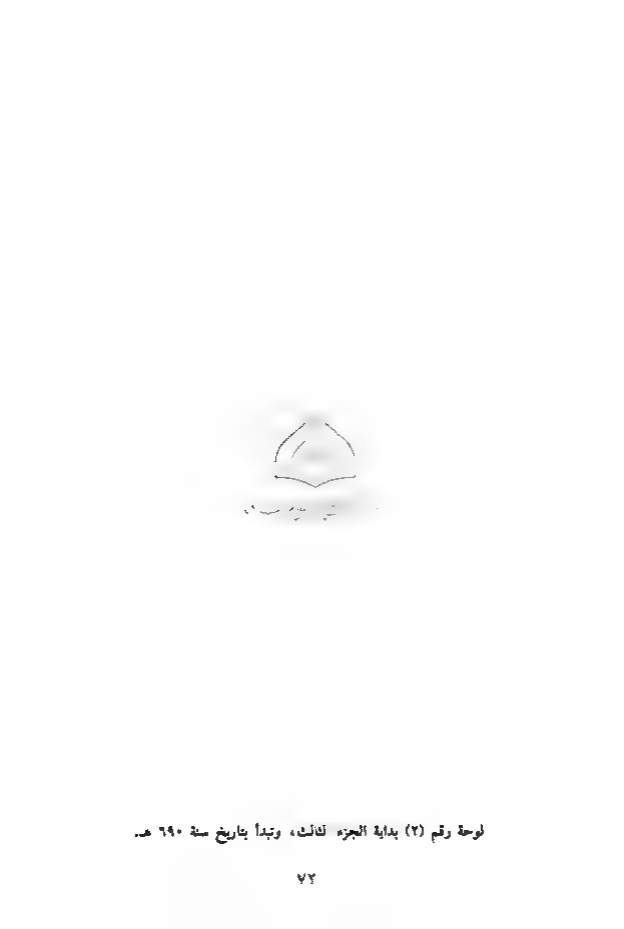 لوحة رقم (٢) بداية الجزء الثالث، وتبدأ بتاريخ سنة ٦٩٠ هـ.
٧٢